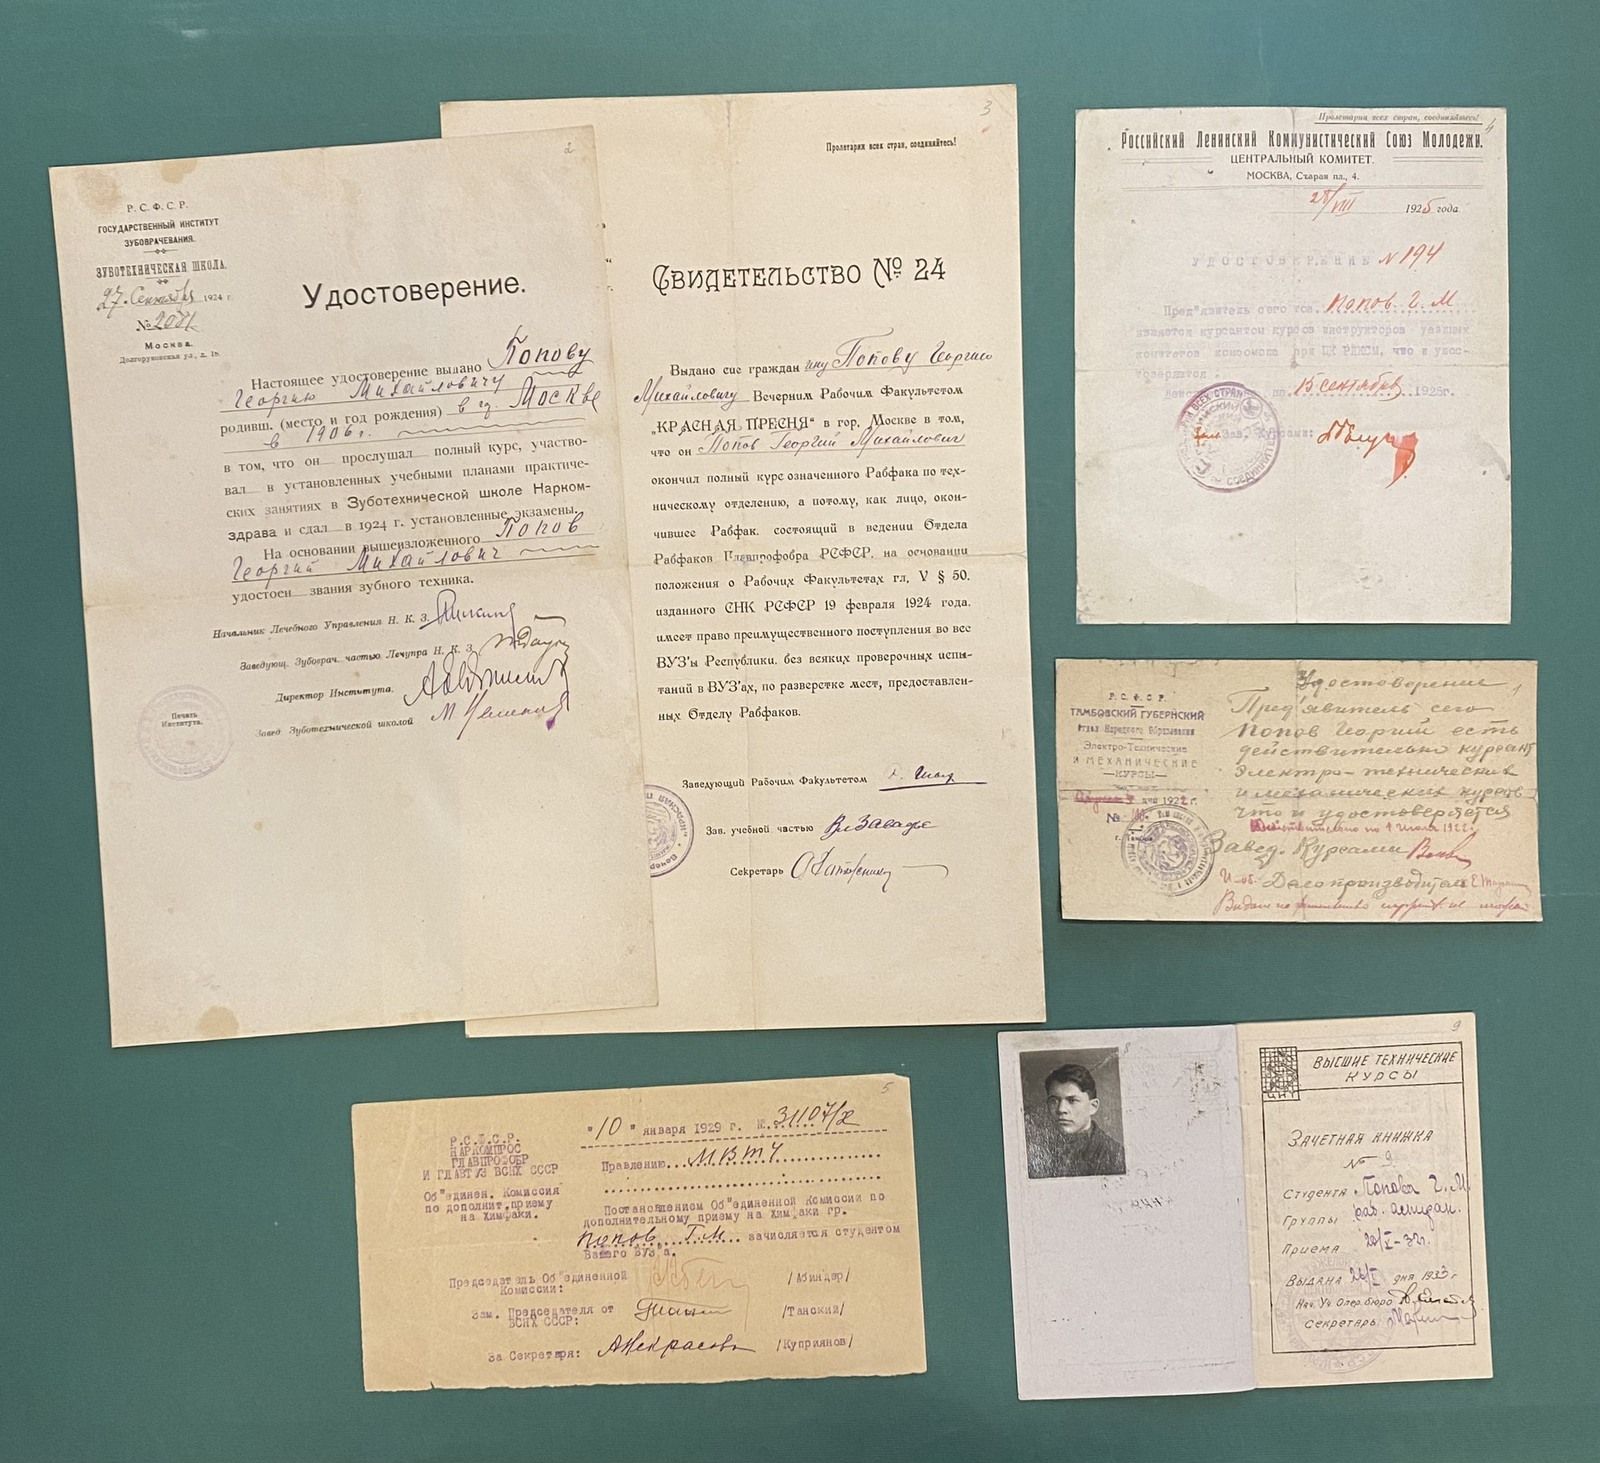 2
Р. С. Ф. С. Р.
ГОСУДАРСТВЕННЫЙ ИНСТИТУТ
ЗУБОВРАЧЕВАНИЯ.
ЗУБОТЕХНИЧЕСКАЯ ШКОЛА.
27 Сентября 1924 г.
№
Москва.
Долгоруковская ул., д. 18.
Удостоверение.
Настоящее удостоверение выдано Попову
Георгию Михайловичу
родивш. (место и год рождения) в г. Москве
в 1906 г.
в том, что он прослушал полный курс, участво-
вал в установленных учебными планами практиче-
ских занятиях в Зуботехнической школе Нарком-
здрава и сдал в 1924 г. установленные экзамены.
На основании вышеизложенного Попов
Георгий Михайлович
удостоен звания зубного техника.
Начальник Лечебного Управления Н. К. З.
Заведующ. Зубоврач. частью Лечупра Н. К. З.
Директор Института.
Завед Зуботехнической школой
Печать
Института.
3
Пролетарии всех стран, соединяйтесь!
Свидетельство № 24
Выдано сие граждан ину Попову Георгию
Михайловичу Вечерним Рабочим Факультетом
„КРАСНАЯ ПРЕСНЯ“ в гор. Москве в том,
что он Попов Георгий Михайлович
окончил полный курс означенного Рабфака по тех-
ническому отделению, а потому, как лицо, окон-
чившее Рабфак, состоящий в ведении Отдела
Рабфаков Главпрофобра РСФСР, на основании
положения о Рабочих Факультетах гл. V § 50,
изданного СНК РСФСР 19 февраля 1924 года,
имеет право преимущественного поступления во все
ВУЗ'ы Республики, без всяких проверочных испы-
таний в ВУЗ'ах, по разверстке мест, предоставлен-
ных Отделу Рабфаков.
Заведующий Рабочим Факультетом
Зав. учебной частью
Секретарь
4
Пролетарии всех стран, соединяйтесь!
Российский Ленинский Коммунистический Союз Молодежи.
ЦЕНТРАЛЬНЫЙ КОМИТЕТ.
МОСКВА, Старая пл., 4.
28/VIII 1925 года
УДОСТОВЕРЕНИЕ № 194
Пред"явитель сего тов. Попов Г. М
является курсантом курсов инструкторов уездных
комитетов комсомола при ЦК РЛКСМ, что и удос-
товеряется.
по 15 сентября 1925г.
Зав. Курсами:
Р. С. Ф. С. Р.
ТАМБОВСКИЙ ГУБЕРНСКИЙ
Отдел Народного Образования
Электро-Технические
И МЕХАНИЧЕСКИЕ
—КУРСЫ—
дня 1922 г.
№
Удостоверение
1
Пред'явитель сего
Попов Георгий есть
действительно курсант
Электро-технических
и механических курсов
что и удостоверяется
Действительно по 1 июля 1922г.
Завед. Курсами
И-об. Делопроизводителя
5
Р.С.Ф.С.Р.
НАРКОМПРОС
ГЛАВПРОФОБР
И ГЛАВТУЗ ВСНХ СССР
Об"единен. Комиссия
по дополнит. приему
на Химфаки.
"10" января 1929 г. №. 31107/х
Правлению МВТУ
Постановлением Об"единенной Комиссии по
дополнительному приему на Химфаки гр.
Попов Г. М зачисляется студентом
Вашего ВУЗ'а.
Председатель Об"единенной
Комиссии: /Абиндер/
Зам. Председателя от
ВСНХ СССР: /Танский/
За Секретаря: /Куприянов/
8
9
ЦИТ
ВЫСШИЕ ТЕХНИЧЕСКИЕ
КУРСЫ
ЗАЧЕТНАЯ КНИЖКА
№ 9
Студента Попова Г. М.
Группы
Приема 20/X-32г.
Выдана 26/I дня 1933 г
Нач. Уч. Опер. бюро
Секретарь